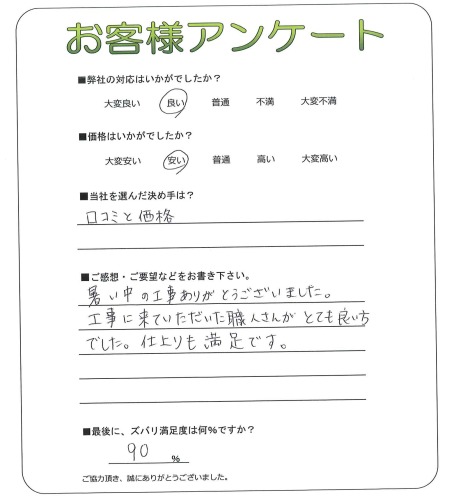 お客様アンケート
■弊社の対応はいかがでしたか？
大変良い 良い 普通 不満 大変不満
■価格はいかがでしたか？
大変安い 安い 普通 高い 大変高い
■当社を選んだ決め手は？
口コミと価格
■ご感想・ご要望などをお書き下さい。
暑い中の工事ありがとうございました。
工事に来ていただいた職人さんがとても良い方
でした。仕上りも満足です。
■最後に、ズバリ満足度は何%ですか？
90 %
ご協力頂き、誠にありがとうございました。